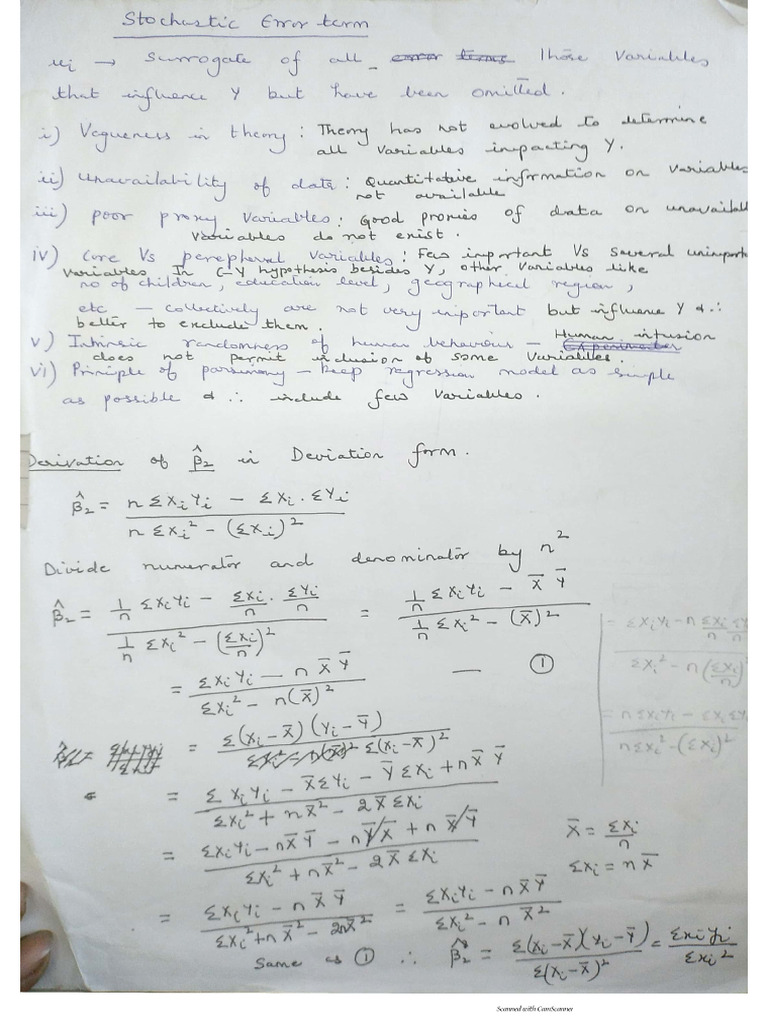 Stochastic Error term
ui → Surrogate of all error terms those variables
that influence Y but have been omitted.
i) Vagueness in theory : Theory has not evolved to determine
all variables impacting Y.
ii) Unavailability of data : Quantitative information on variables
not available
iii) poor proxy variables : Good proxies of data on unavailabl
variables do not exist.
iv) Core Vs perepheral variables : Few important Vs several unimport
variables In C-Y hypothesis besides Y, other variables like
no of children, education level, geographical region,
etc — collectively are not very important but influence Y & ∴
better to exclude them.
v) Intrinsic randomness of human behaviour — Human intusion
does not permit inclusion of some variables.
vi) Principle of parsimony — keep regression model as simple
as possible & ∴ include few variables.
Derivation of β̂2 in Deviation form.
β̂2 = (n ΣXiYi − ΣXi . ΣYi) / (n ΣXi² − (ΣXi)²)
Divide numerator and denominator by n²
β̂2 = (1/n ΣXiYi − ΣXi/n . ΣYi/n) / (1/n ΣXi² − (ΣXi/n)²) = (1/n ΣXiYi − X̄ Ȳ) / (1/n ΣXi² − (X̄)²)
= (ΣXiYi − n X̄ Ȳ) / (ΣXi² − n(X̄)²) — ①
= Σ(Xi − X̄)(Yi − Ȳ) / Σ(Xi − X̄)²
= (ΣXiYi − X̄ΣYi − ȲΣXi + n X̄ Ȳ) / (ΣXi² + n X̄² − 2X̄ ΣXi)
= (ΣXiYi − nX̄ Ȳ − nȲX̄ + n X̄Ȳ) / (ΣXi² + nX̄² − 2X̄ ΣXi)
X̄ = ΣXi/n
ΣXi = n X̄
= (ΣXiYi − n X̄ Ȳ) / (ΣXi² + n X̄² − 2nX̄²) = (ΣXiYi − n X̄ Ȳ) / (ΣXi² − n X̄²)
Same as ① ∴ β̂2 = Σ(Xi − X̄)(Yi − Ȳ) / Σ(Xi − X̄)² = Σxiyi / Σxi²
= (ΣXiYi − n ΣXi/n ΣY) / (ΣXi² − n(ΣXi/n)²)
= (nΣXiYi − ΣXiΣY) / (nΣXi² − (ΣXi)²)
Scanned with CamScanner